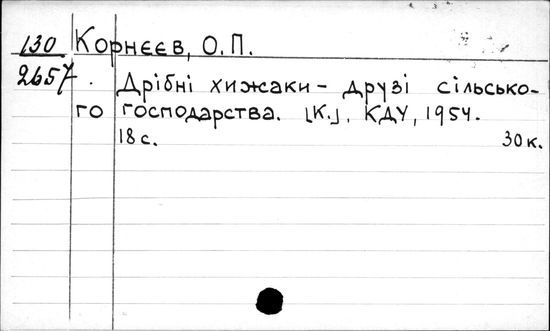 130 Корнєєв, О.П.
2657. Дрібні хижаки - друзі сільсько-
го господарства. [К.], КДУ, 1954.
18 с. 30 к.